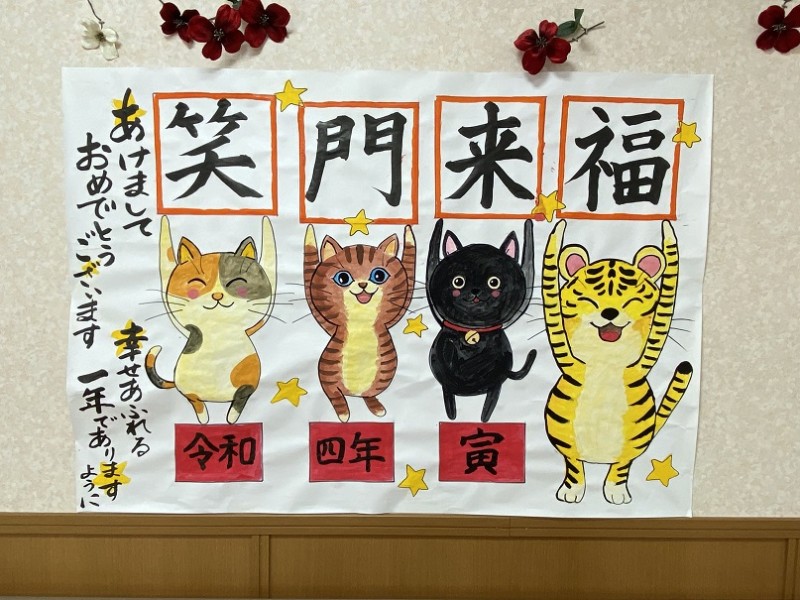 笑門来福
あけまして
おめでとう
ございます
幸せあふれる
一年であります
ように
令和
四年
寅